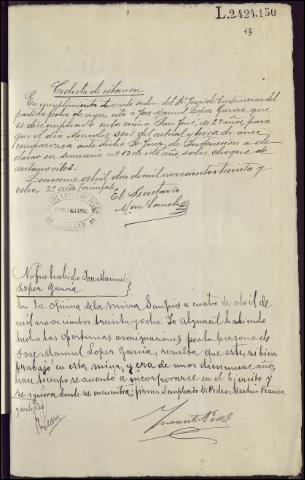 L.2424.150
13
Cedula de citacion
En cumplimiento de carta orden del Sr. Juez de Instruccion del
partido fecha de ayer, cito a Jose Manuel Lopez Garcia, que
se dice empleado en la mina San Luis, de 29 años, para
que el dia Miercoles, seis del actual y hora de once
comparezca ante dicho Sr Juez, de Instruccion a de-
clarar en sumario nº 13 de este año, sobre choque de
automoviles.
abril dos de mil novecientos treinta y
ocho. 2º año Triunfal
El Secretario
Man Sanchez
No fue habido Jose Manuel
Lopez Garcia
En la oficina de la mina San Luis a cuatro de abril de
mil novecientos treinta y ocho. Yo Alguacil habiendo
hecho las oportunas averiguaciones por la persona de
Jose Manuel Lopez Garcia, resulta que este, si bien
trabajó en esta mina, y era de unos diecinueve años,
hace tiempo se ausentó a incorporarse en el Ejercito y
se ignora donde se encuentra; firma el empleado D. Pedro Martin
y certifico